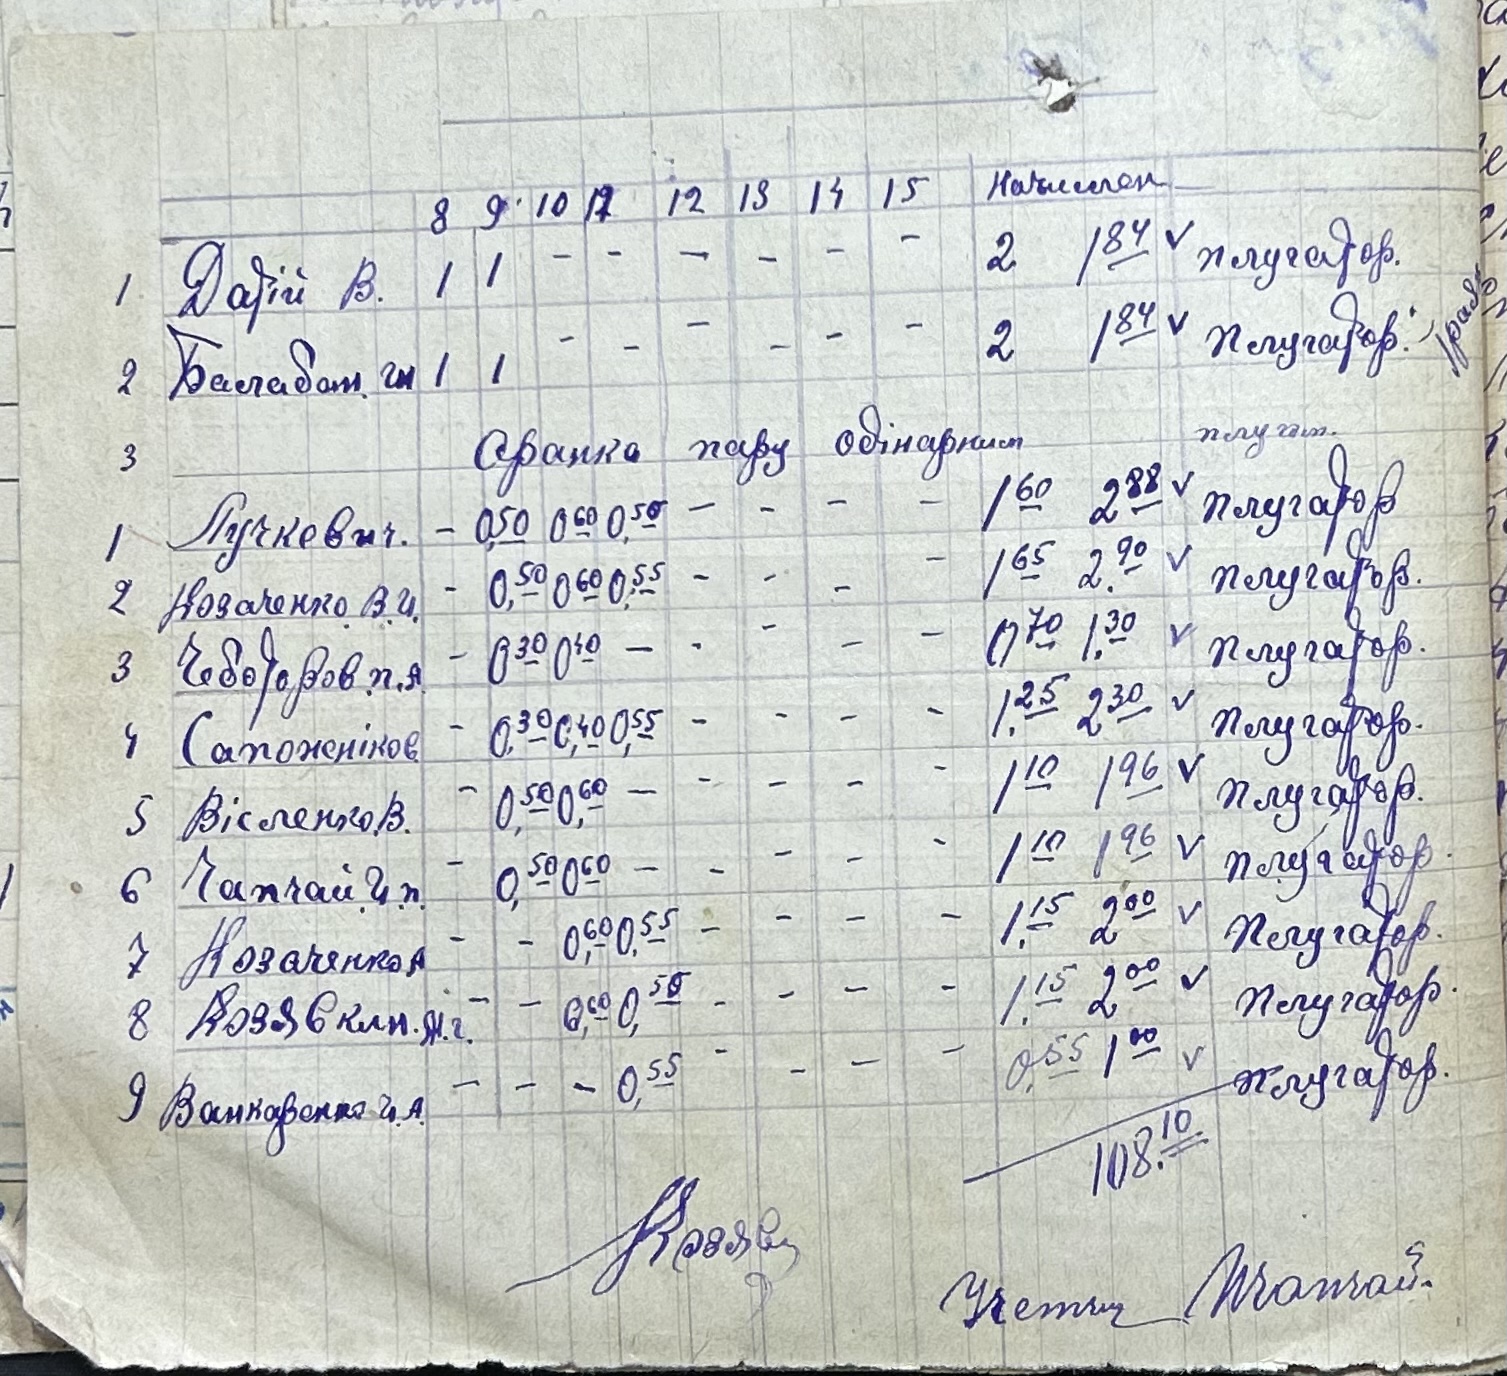 8 9 10 11 12 13 14 15 Начислен
1 Дадій В. 1 1 - - - - - - 2 1 84 v плугатор.
2 Балабан. Ін 1 1 - - - - - - 2 1 84 v плугатор.
3 Оранка пару одінарним плугом.
1 Лучкевич. - 0,50 0 60 0,50 - - - - 1 60 2 88 v плугатор
2 Козаченко В.И. - 0,50 0 60 0,55 - - - - 1 65 2.90 v плугатор.
3 Чеботоров п.А - 0 30 0 40 - - - - - 0 70 1.30 v плугатор.
4 Сапожніков - 0,30 0,40 0,55 - - - - 1.25 2 30 v плугатор.
5 Вісленко В. - 0,50 0,60 - - - - - 1 10 1 96 v плугатор.
6 Чапчай И.п. - 0,50 0 60 - - - - - 1 10 1 96 v плугатор.
7 Козаченко А - - 0,60 0,55 - - - - 1.15 2 00 v плугатор.
8 Козявкин. Я.г. - - 0,60 0,50 - - - - 1.15 2 00 v плугатор.
9 И.А. - - - 0,55 - - - - 0,55 1 00 v плугатор.
108.10
Учетчик Чапчай.